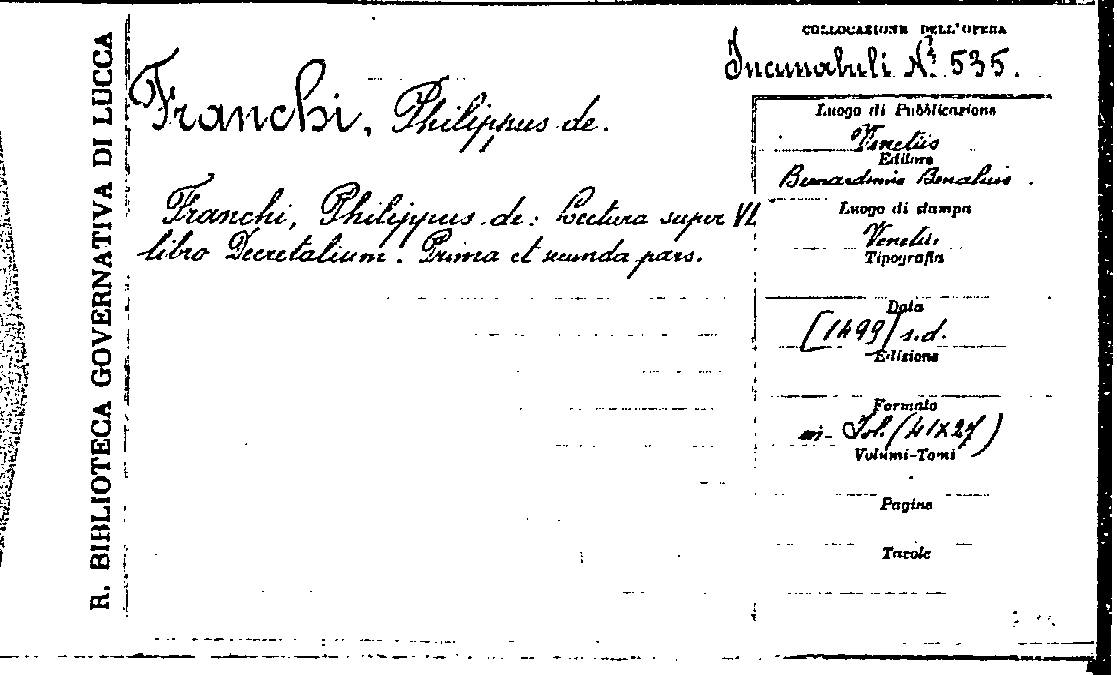 R. BIBLIOTECA GOVERNATIVA DI LUCCA
Franchi, Philippus de.
Franchi, Philippus de: Lectura super VI
libro Decretalium. Prima et secunda pars.
COLLOCAZIONE DELL'OPERA
Incunabuli N. 535.
Luogo di Pubblicazione
Venetiis
Editore
Bernardinus Benalius.
Luogo di stampa
Venetiis.
Tipografia
Data
[1499] s.d.
Edizione
Formato
in-fol. (41x27)
Volumi-Tomi
Pagine
Tavole